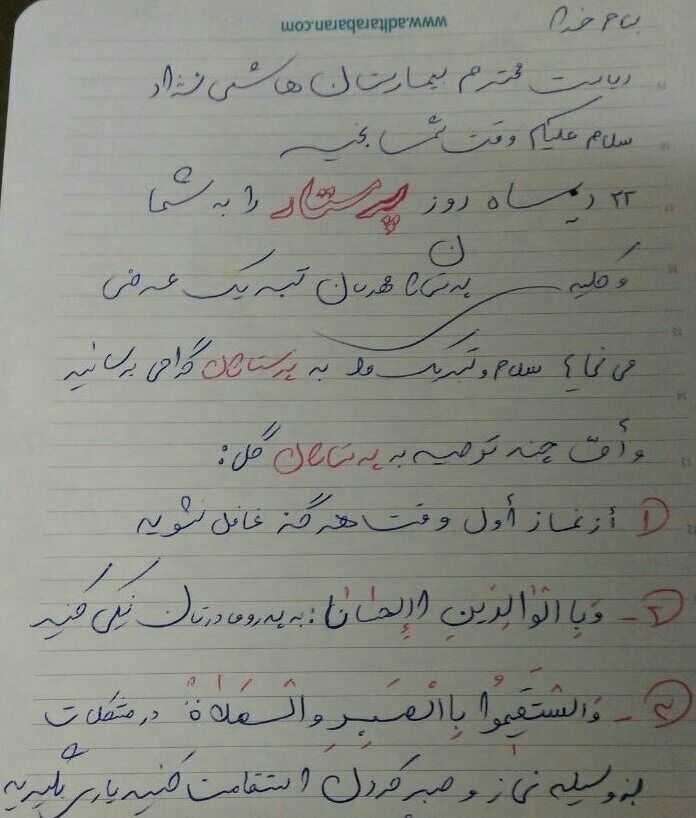 www.aditarabaran.com
بنام خدا
ریاست محترم بیمارستان هاشمی نژاد
سلام علیکم وقت شما بخیر
۲۲ دیماه روز پرستار را به شما
و کلیه پرستاران مهربان تبریک عرض
می نمایم سلام و تبریک مرا به پرستاران گرامی برسانید
و أمّا چند توصیه به پرستاران گل:
۱ أز نماز أول وقت هرگز غافل نشوید
۲- وَبِاالْوَالِدَینِ اِلإحسَانَا: به پدر و مادرتان نیکی کنید
۳- وَاسْتَقیمُوا بِاالْصَبرِ وَالْصَلاةِ در مشکلات
به وسیله نماز و صبر کردن استقامت کنید یاری بگیرید